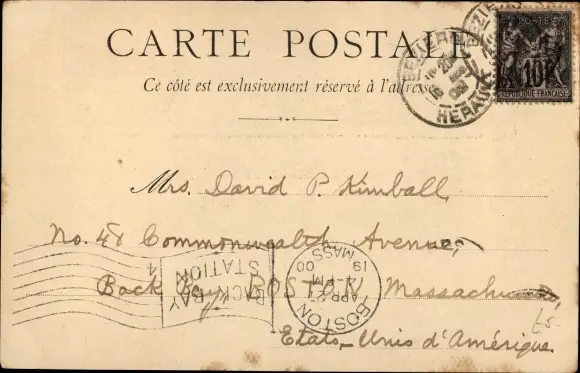 CARTE POSTALE
Ce côté est exclusivement réservé à l'adresse
BEZIERS
HERAULT
POSTE
10
REPUBLIQUE FRANÇAISE
Mrs. David P. Kimball,
No. 48 Commonwealth Avenue,
Back Bay, BOSTON, Massachusetts,
Etats-Unis d'Amérique.
BACK BAY
STATION
4
BOSTON
APR 27
MASS
19 00